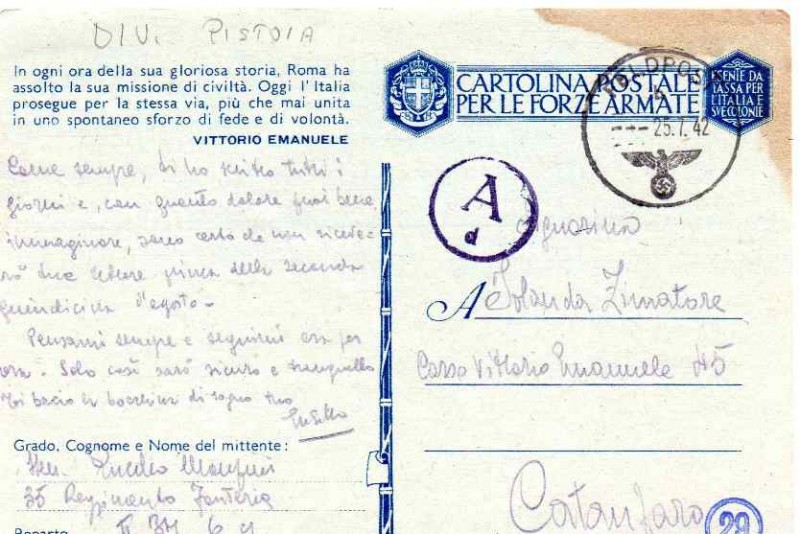 DIV. PISTOIA
In ogni ora della sua gloriosa storia, Roma ha
assolto la sua missione di civiltà. Oggi l'Italia
prosegue per la stessa via, più che mai unita
in uno spontaneo sforzo di fede e di volontà.
VITTORIO EMANUELE
CARTOLINA POSTALE
PER LE FORZE ARMATE
ESENTE DA
TASSA PER
L'ITALIA E
SUE COLONIE
FELDPOST
b
25.7.42
A
d
Come sempre, ti ho scritto tutti i
giorni e, con quanto dolore puoi bene
immaginare, sono certo che non riceve
rò tue lettere prima della seconda
quindicina d'agosto -
Pensami sempre e seguimi ora per
ora - Solo così sarò sicuro e tranquillo
Ti bacio la bocchina di sogno tuo
Signorina
A Iolanda Zimatore
Corso Vittorio Emanuele 45
Catanzaro
29
Grado, Cognome e Nome del mittente:
35 Reggimento Fanteria
Reparto